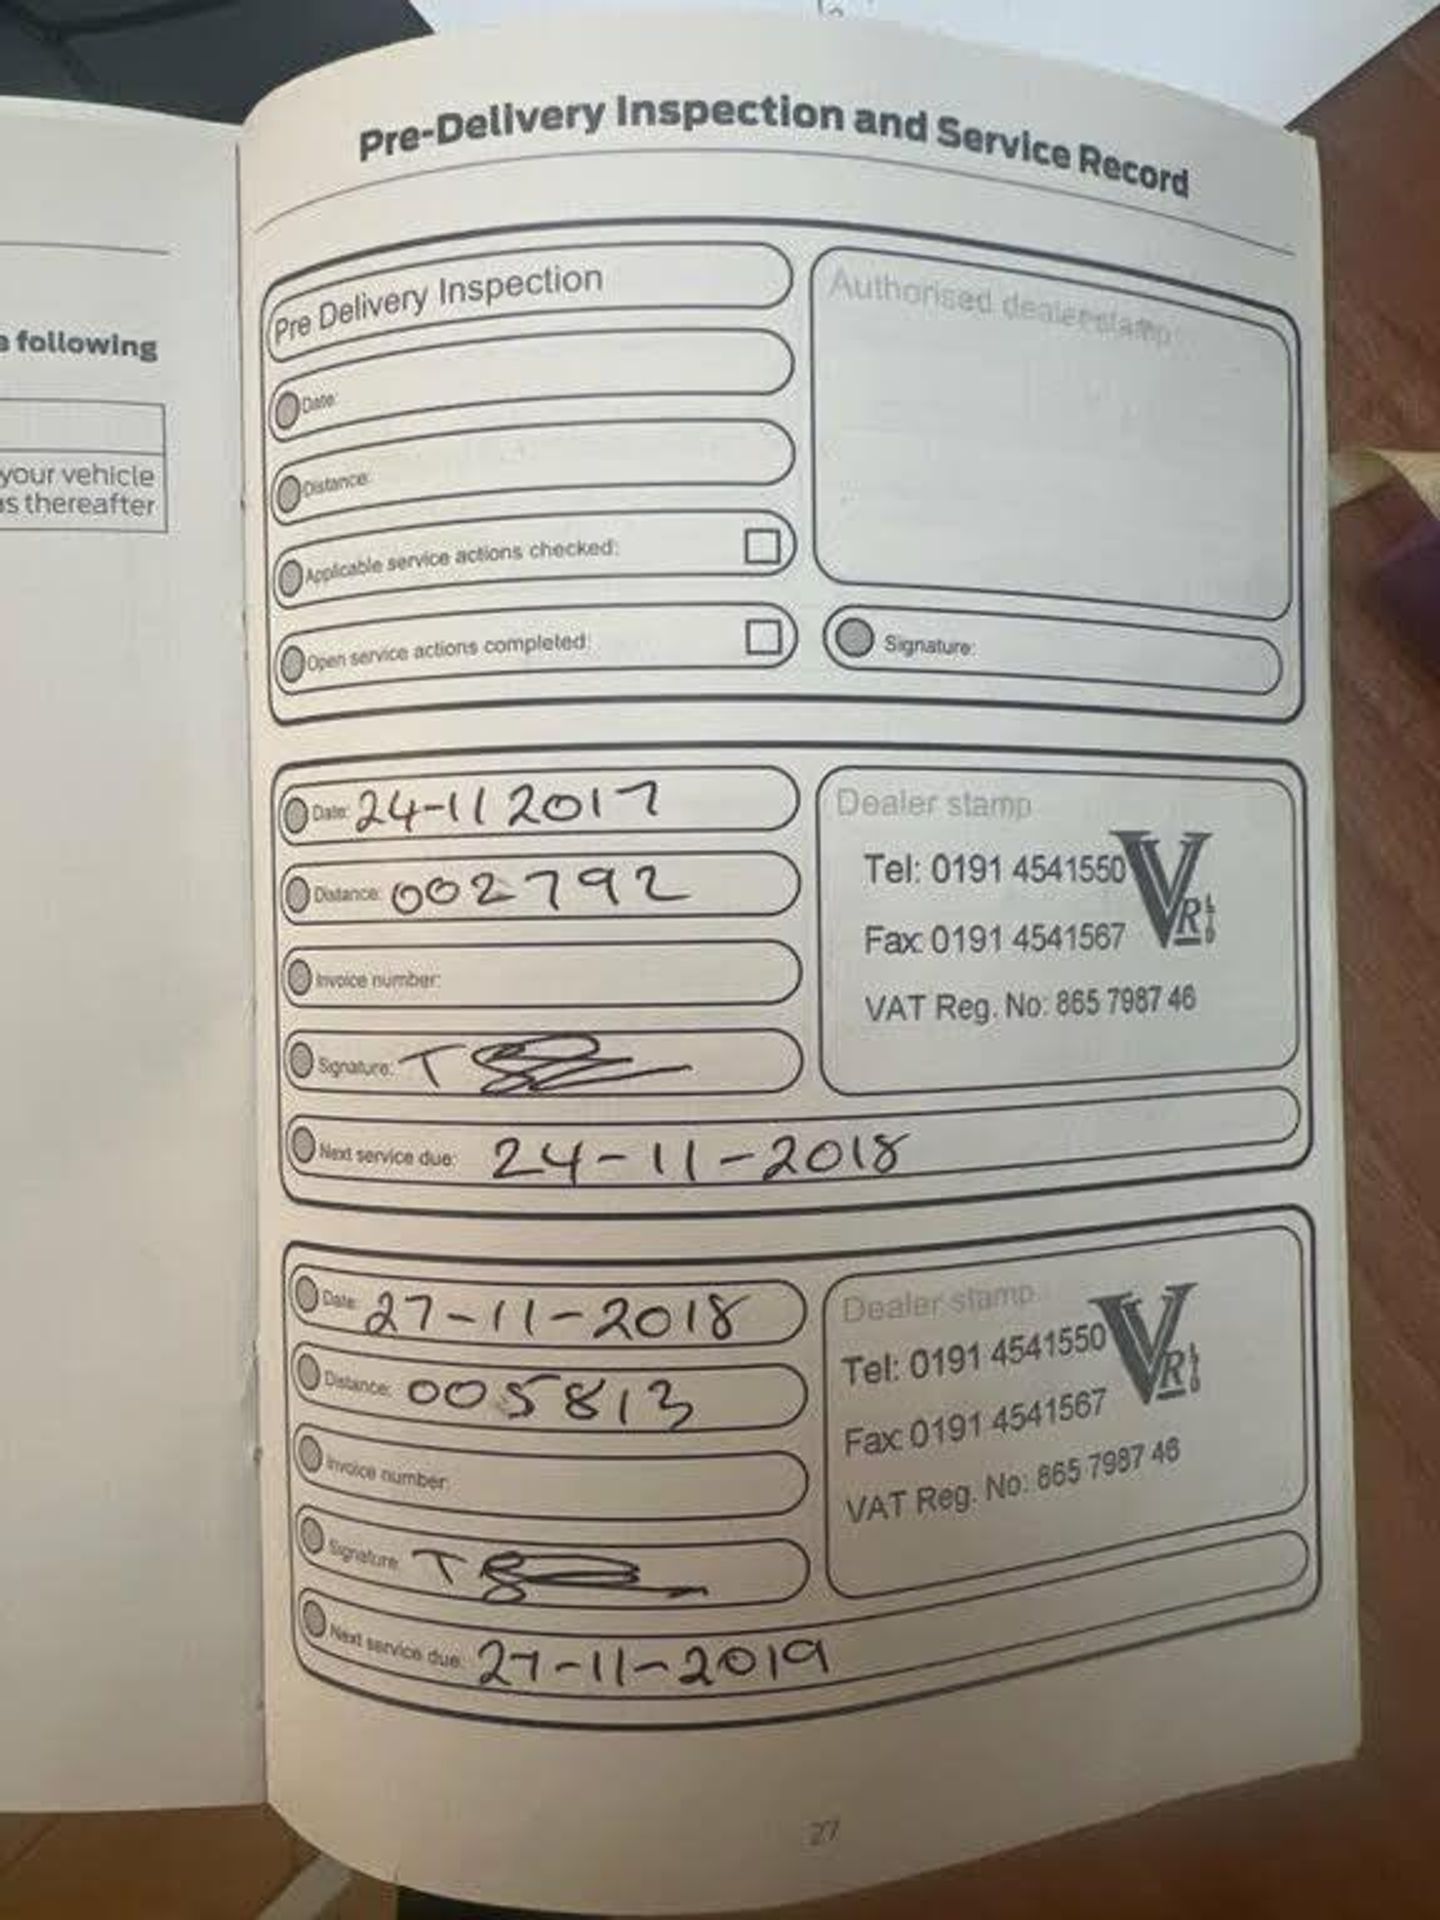 Pre-Delivery Inspection and Service Record
e following
your vehicle
as thereafter
Pre Delivery Inspection
Date:
Distance:
Applicable service actions checked:
Open service actions completed:
Authorised dealer stamp
Signature:
Date: 24-11 2017
Distance: 002792
Invoice number:
Signature: T
Next service due: 24-11-2018
Dealer stamp
Tel: 0191 4541550
Fax: 0191 4541567
VAT Reg. No: 865 7987 46
VR LTD
Date: 27-11-2018
Distance: 005813
Invoice number:
Signature: T
Next service due: 27-11-2019
Dealer stamp
Tel: 0191 4541550
Fax: 0191 4541567
VAT Reg. No: 865 7987 46
VR LTD
27